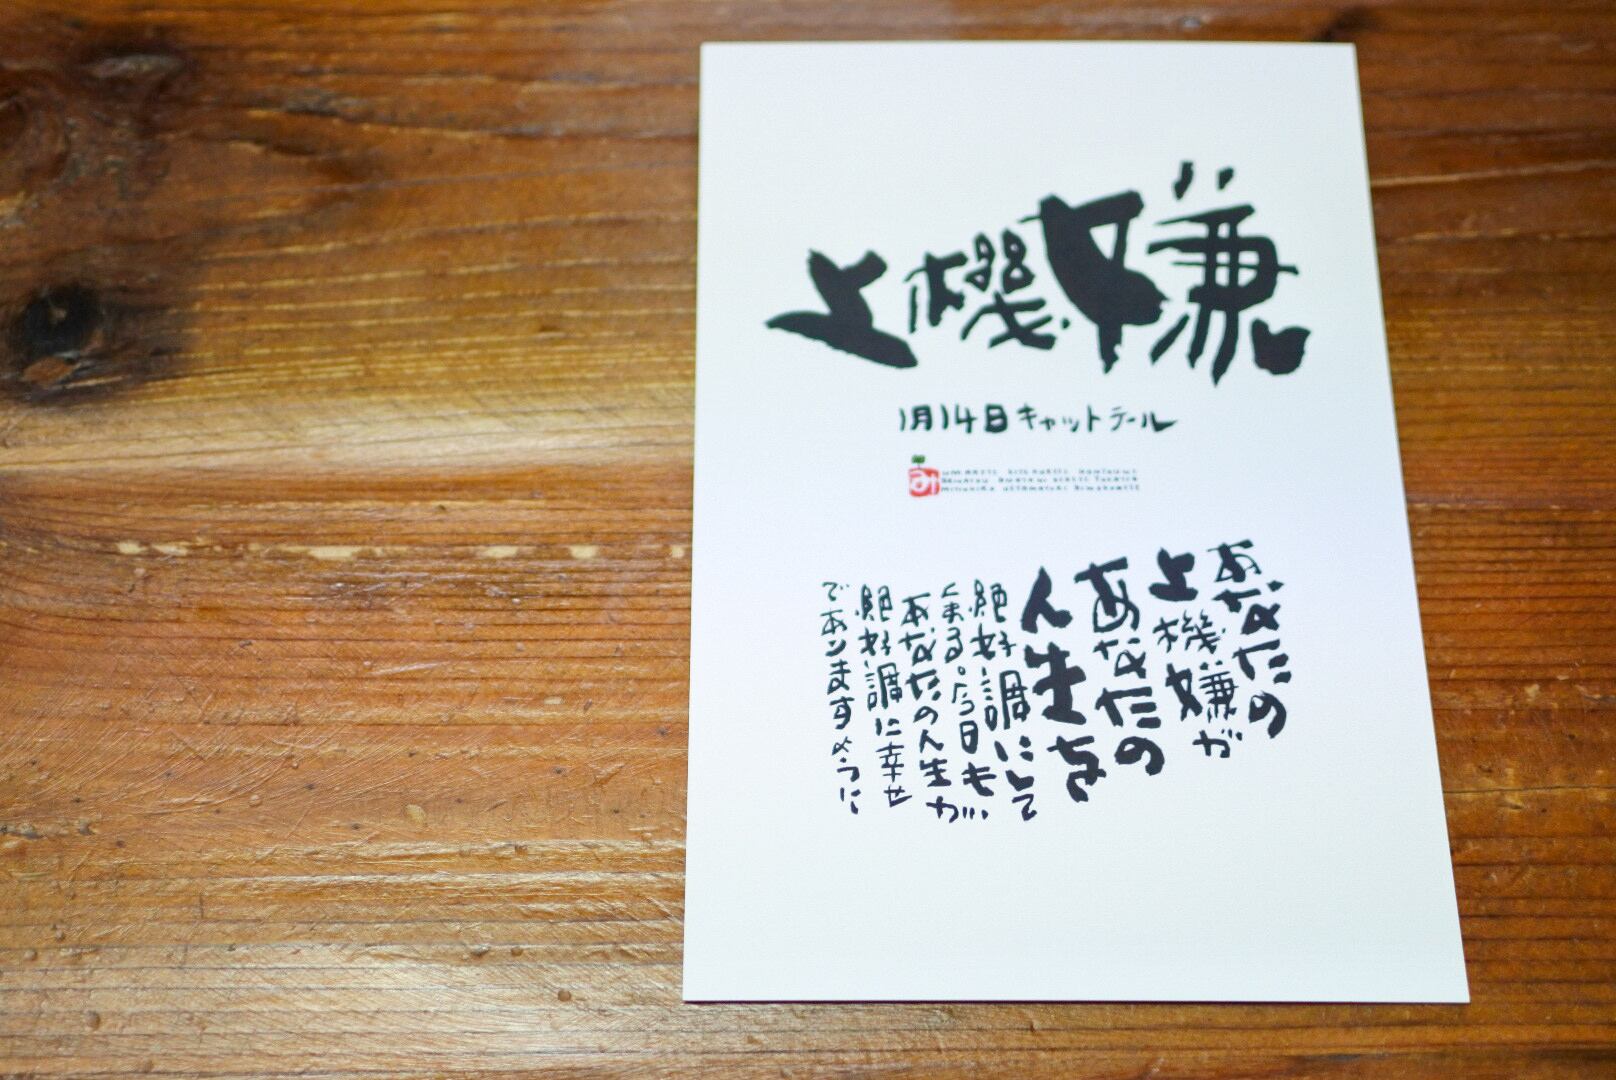 上機嫌
1月14日キャットテール
み
あなたの
上機嫌が
あなたの
人生を
絶好調にして
くまる。今日も
あなたの人生が
絶好調に幸せ
でありますように